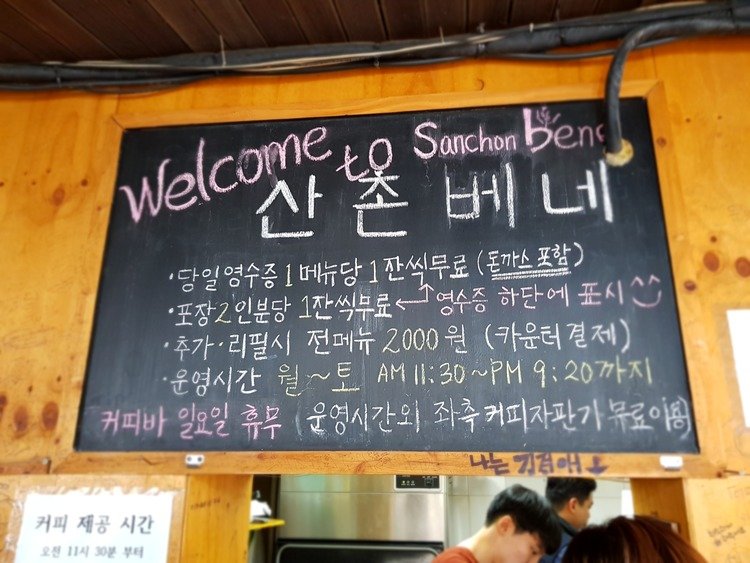 Welcome to Sanchon bene
산촌 베네
·당일영수증 1메뉴당 1잔씩무료 (돈까스 포함)
·포장2인분당 1잔씩무료 ← 영수증 하단에 표시
·추가·리필시 전메뉴 2000원 (카운터결제)
·운영시간 월~토 AM 11:30~PM 9:20까지
커피바 일요일 휴무 (운영시간외 좌측커피자판기 무료이용)
나는
커피 제공 시간
오전 11시 30분 부터